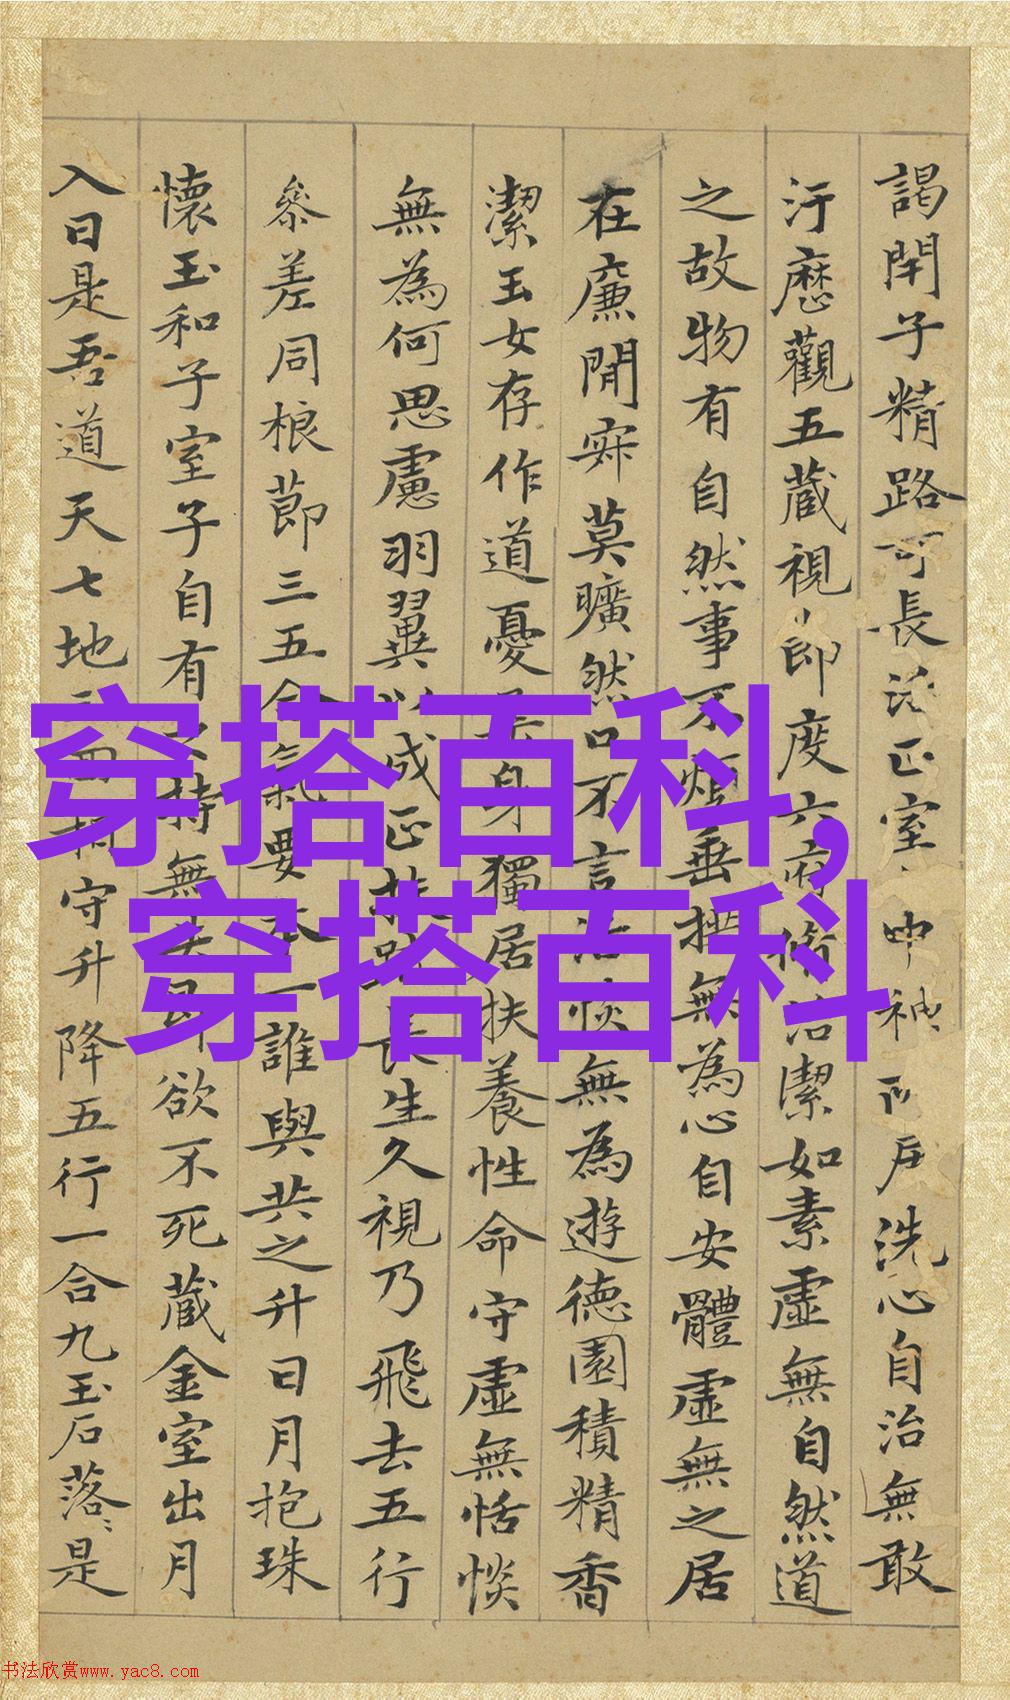 謁閇子精路可長活正室中神所居洗心自治無敢
汙歷觀五藏視節度六府脩治潔如素虛無自然道
之故物有自然事不煩垂拱無為心自安體虛無之居
在廉閒寂莫曠然口不言恬惔無為遊德園積精香
潔玉女存作道憂身獨居扶養性命守虛無恬惔
無為何思慮羽翼以成正扶踈長生久視乃飛去五行
參差同根節三五合氣要本一誰與共之升日月抱珠
懷玉和子室子自有之持無失即欲不死藏金室出月
入日是吾道天七地三回相守升降五行一合九玉石落〻是
穿搭百科,
穿搭百科
书法欣赏www.yac8.com